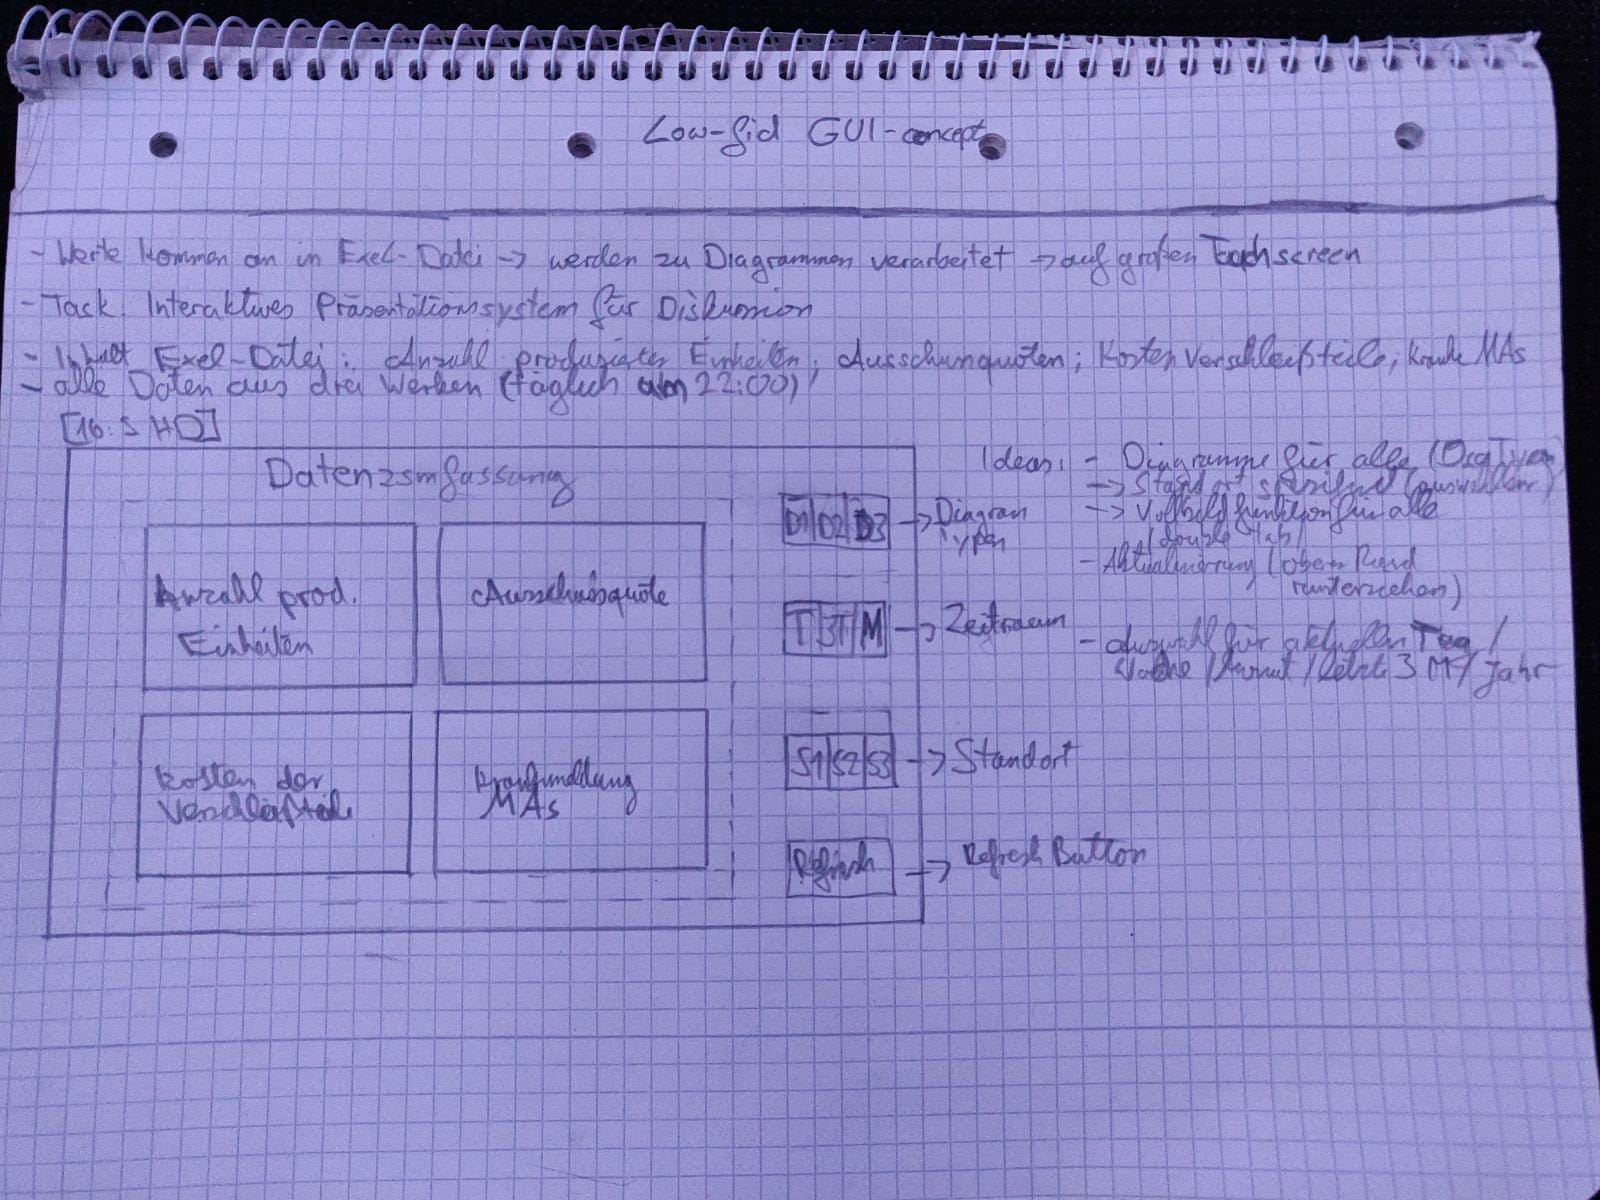 Low-fid GUI-concept
- Werte kommen an in Exel-Datei -> werden zu Diagrammen verarbeitet -> auf großen Touchscreen
- Task: Interaktives Präsentationssystem für Diskussion
- Inhalt Exel-Datei: Anzahl produzierter Einheiten; Ausschussquoten; Kosten Verschleißteile; kranke MAs
- alle Daten aus drei Werken (täglich um 22:00)
[16:9 HD]
Datenzsmfassung
Anzahl prod.
Einheiten
Ausschussquote
Kosten der
Verschleißteile
Krankmeldung
MAs
D1 D2 D3 -> Diagram
Typen
T 3T M -> Zeitraum
S1 S2 S3 -> Standort
Refresh -> Refresh Button
Ideas: - Diagramme für alle
-> Standort spezifisch (auswählen)
-> Vollbildfunktion für alle
(double tab)
- Aktualisierung (oberen Rand
runterziehen)
- Auswahl für aktuellen Tag /
Woche / Monat / letzte 3 M / Jahr